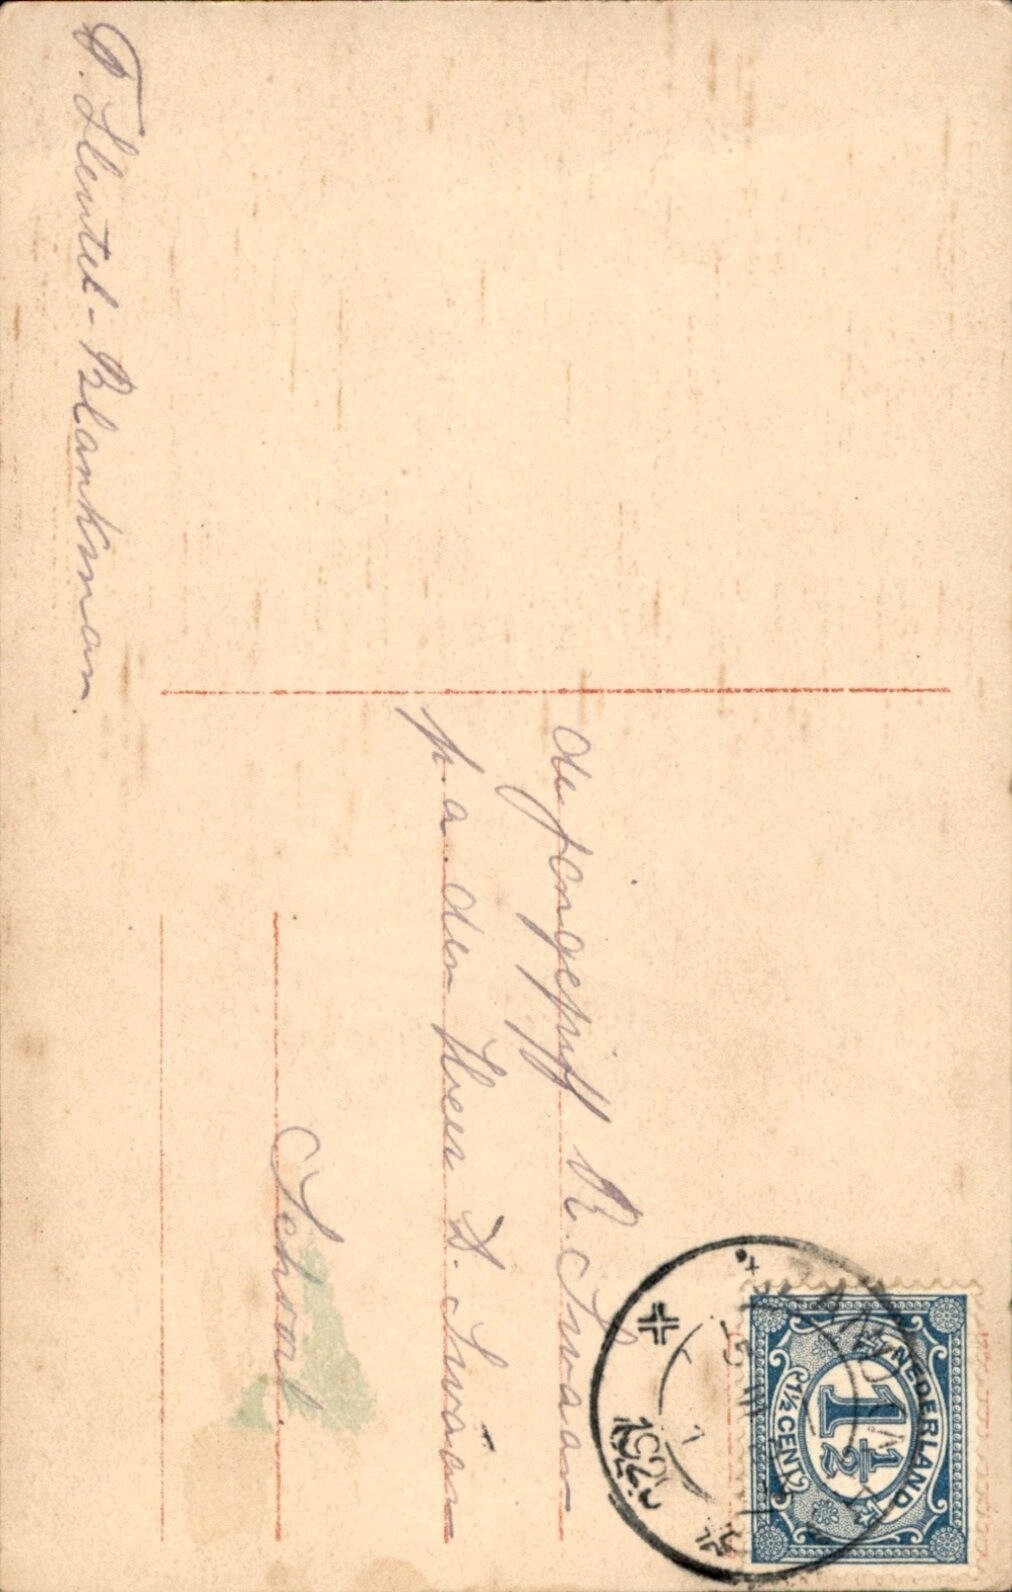 T. Slentel-Blankman.
de jongejuff R. Swaan
p. a. den Heer D. Swaan
Schoorl.
NEDERLAND
1½
1½ CENT
192